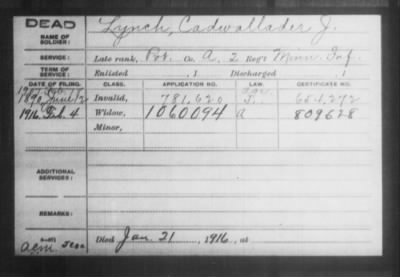 DEAD
NAME OF SOLDIER: Lynch, Cadwallader J.
SERVICE: Late rank, Pvt. Co. A, 2 Reg't Minn. Inf.
TERM OF SERVICE: Enlisted , 1 Discharged , 1
DATE OF FILING. CLASS. APPLICATION NO. LAW. CERTIFICATE NO.
1890, June 12 Invalid, 781,620 J. 654,272
1916, Feb. 4 Widow, 1060094 A 809628
Minor,
ADDITIONAL SERVICES:
REMARKS:
Died Jan. 21, 1916, at